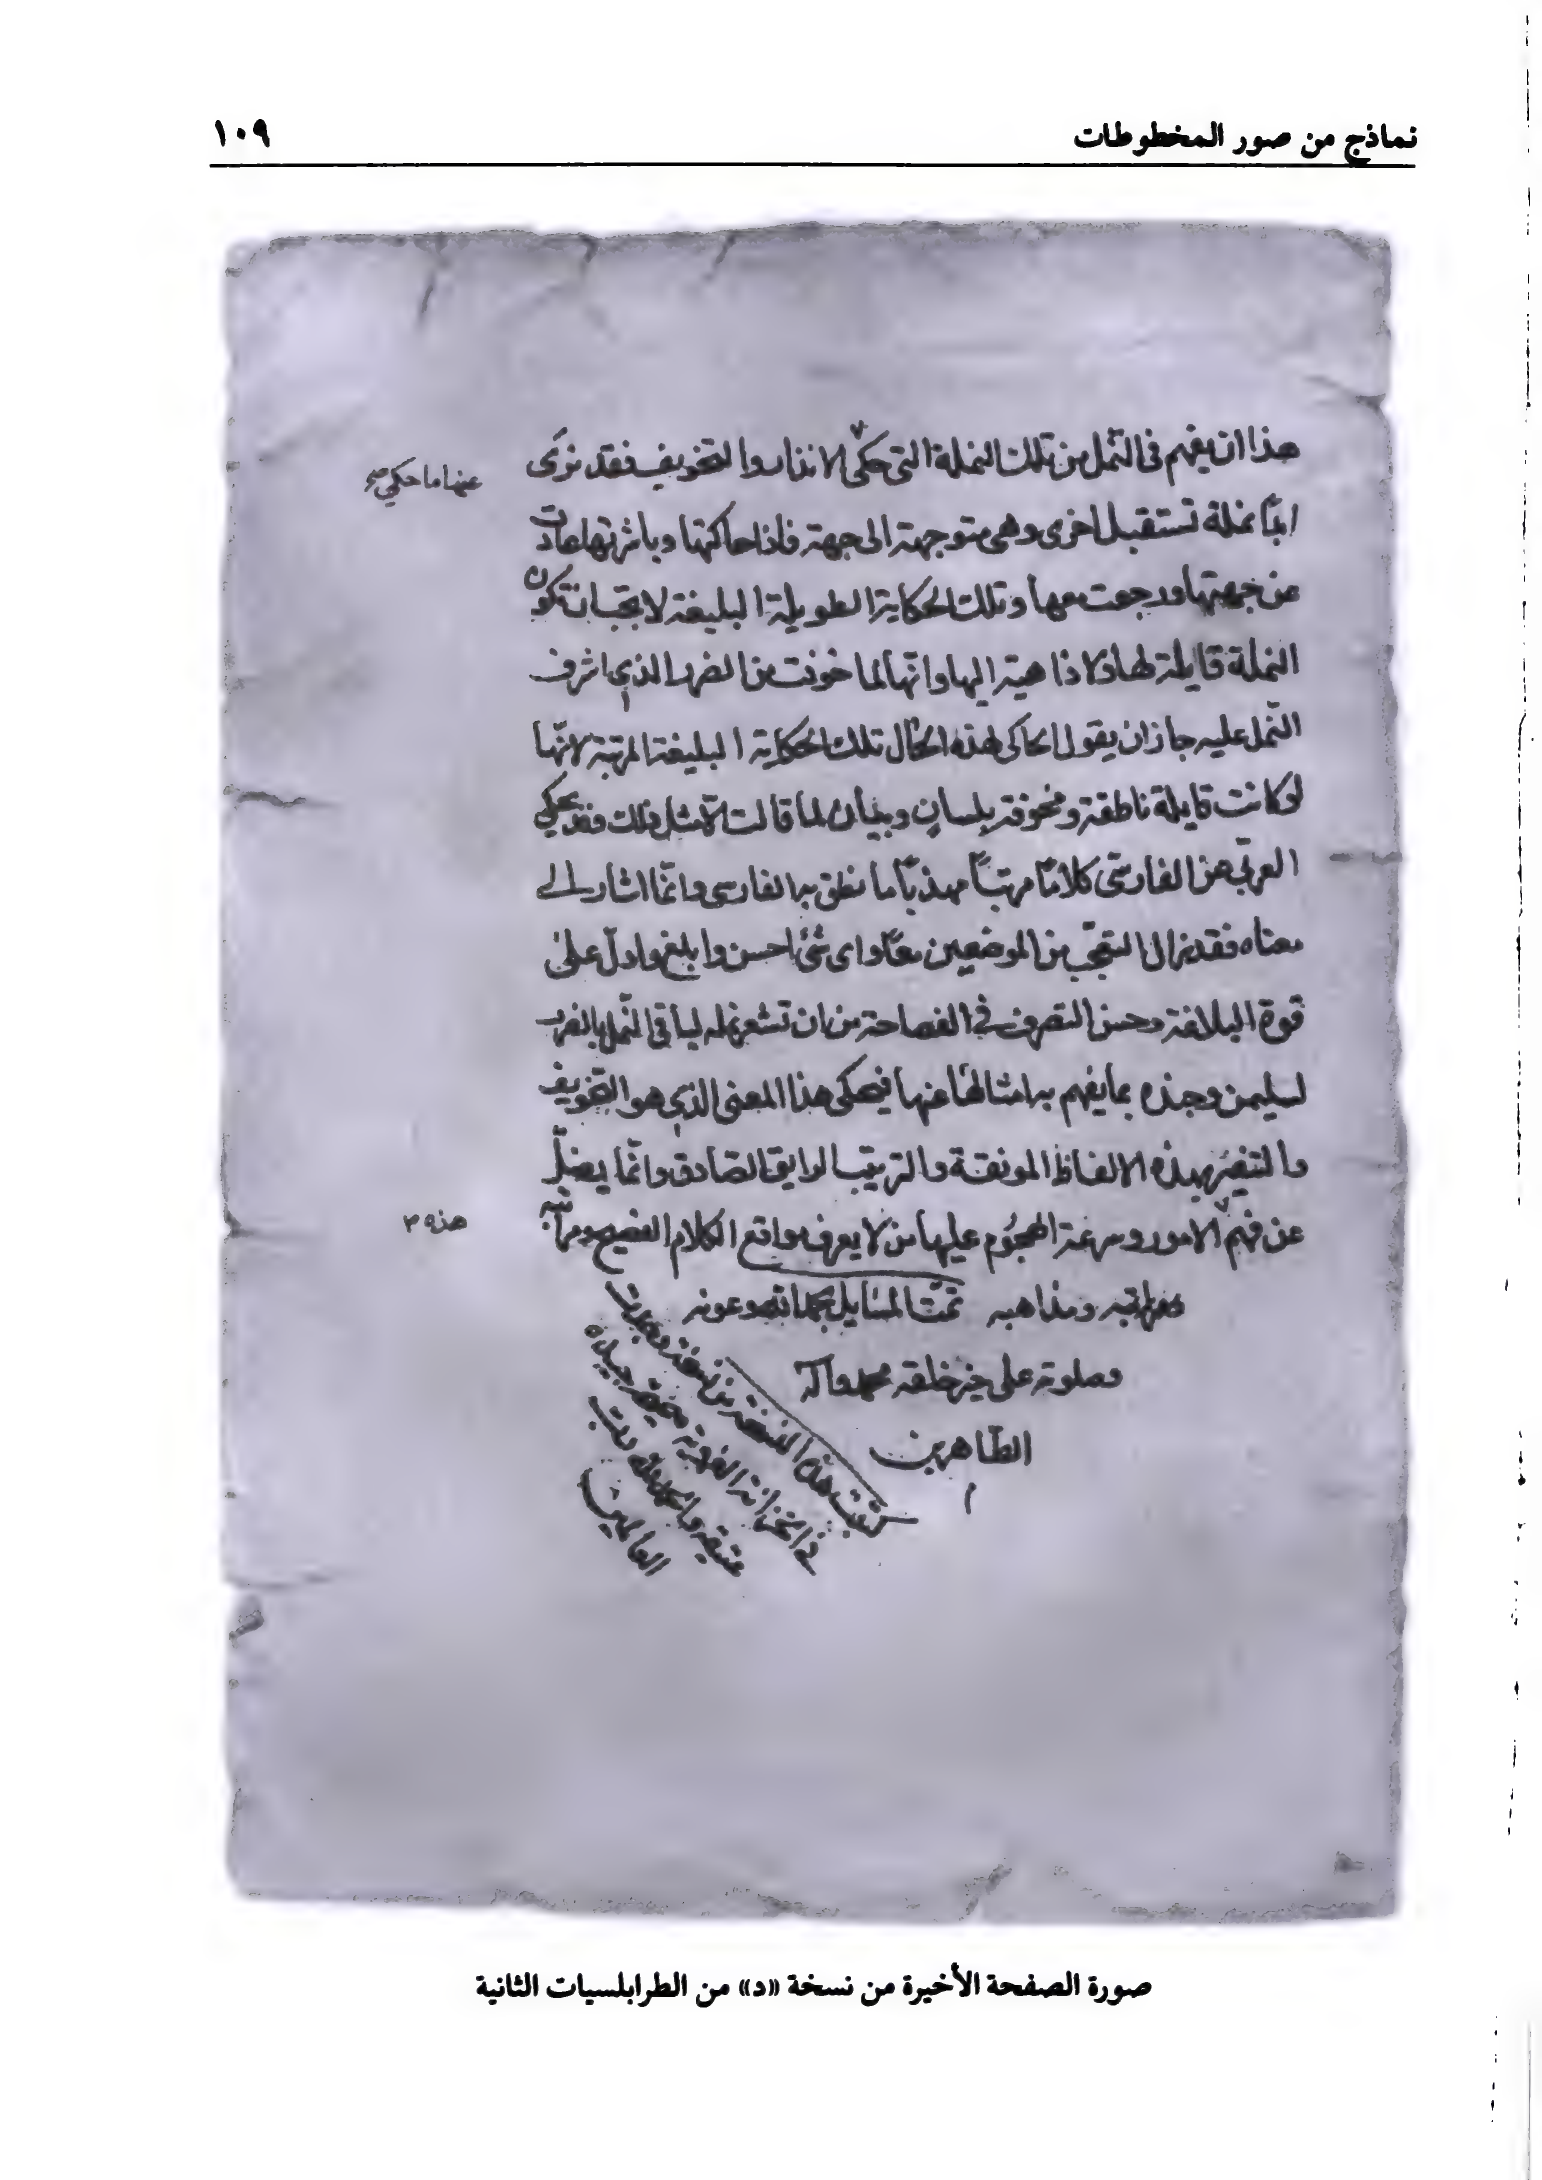 نماذج من صور المخطوطات ١٠٩
هذا ان يفهم فى النّمل من تلك النملة التى حكى الانذار والتخويف فقد نرى
عنها ما حكى
ابدًا نملة تستقبل اخرى وهى متوجهة الى جهة فاذا حاكتها وباشرتها عادت
عن جهتها ورجعت معها وتلك الحكاية الطويلة البليغة لا تجب ان تكون
النملة قايلة لها ولا ذاهبة اليها وانّها لما خوفت من الضرر الذى اشرف
النّمل عليه جاز ان يقول الحاكى لهذه الحال تلك الحكاية البليغة المرتبة لانّها
لو كانت قايلة ناطقة ومخوفة بلسانٍ وبيان لما قالت الّا مثل ذلك وقد يحكى
العربىّ عن الفارسىّ كلامًا مرتبًا مهذبًا ما نطق به الفارسى وانّما اشار الى
معناه فقد زال التعجّب من الموضعين معًا واى شئ احسن وابلغ وادلّ على
قوة البلاغة وحسن التصرف فى الفصاحة من ان تشعر نملة لباقى النّمل بالضرر
لسليمن وجنده بما يفهم به امثالها عنها فيحكى هذا المعنى الذى هو التخويف
والتنفير بهذه الالفاظ المونقة والترتيب الرايق الصّادق وانّما يضلّ
عن فهم الامور وسرعة الهجوم عليها من لا يعرف مواقع الكلام الفصيح ومراتبه
هذه
ومراتبه ومذاهبه تمّت المسايل بحمد الله وعونه
وصلوته على خير خلقه محمد وآله
الطّاهرين
كتبت هذه النسخة من نسخة وجدت
فى الخزانة الغروية
عتيقة والحمد لله رب
العالمين
صورة الصفحة الأخيرة من نسخة «د» من الطرابلسيات الثانية